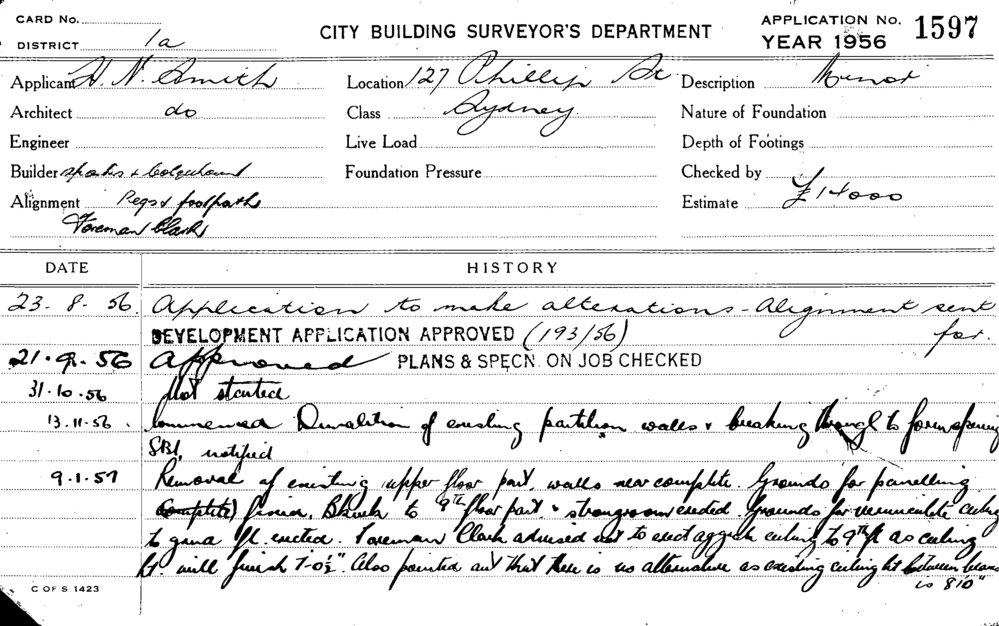 CARD No.
DISTRICT 1a
CITY BUILDING SURVEYOR'S DEPARTMENT
APPLICATION No. 1597
YEAR 1956
Applicant H. N. Smith
Location 127 Phillip St
Description Minor
Architect do
Class Sydney
Nature of Foundation
Engineer
Live Load
Depth of Footings
Builder & Colquhoun
Foundation Pressure
Checked by
Alignment Pegs & footpath
Estimate £14000
Foreman Clark
DATE HISTORY
23. 8. 56 Application to make alterations - Alignment sent
for.
DEVELOPMENT APPLICATION APPROVED (193/56)
21. 9. 56 Approved PLANS & SPECN. ON JOB CHECKED
31.10.56 Not started
13.11.56. Commenced Demolition of existing partition walls & breaking through to form opening
SBI, notified
9.1.57 Removal of existing upper floor part. walls near complete. Grounds for panelling
(complete) fixing. Bkwk to 9th floor part & strongroom erected. Grounds for vermiculite ceiling
to grnd fl. erected. Foreman Clark advised not to erect ceiling to 9th fl as ceiling
ht. will finish 7-0½". Also pointed out that there is no alternative as existing ceiling ht between beams
is 8'10"
C OF S 1423